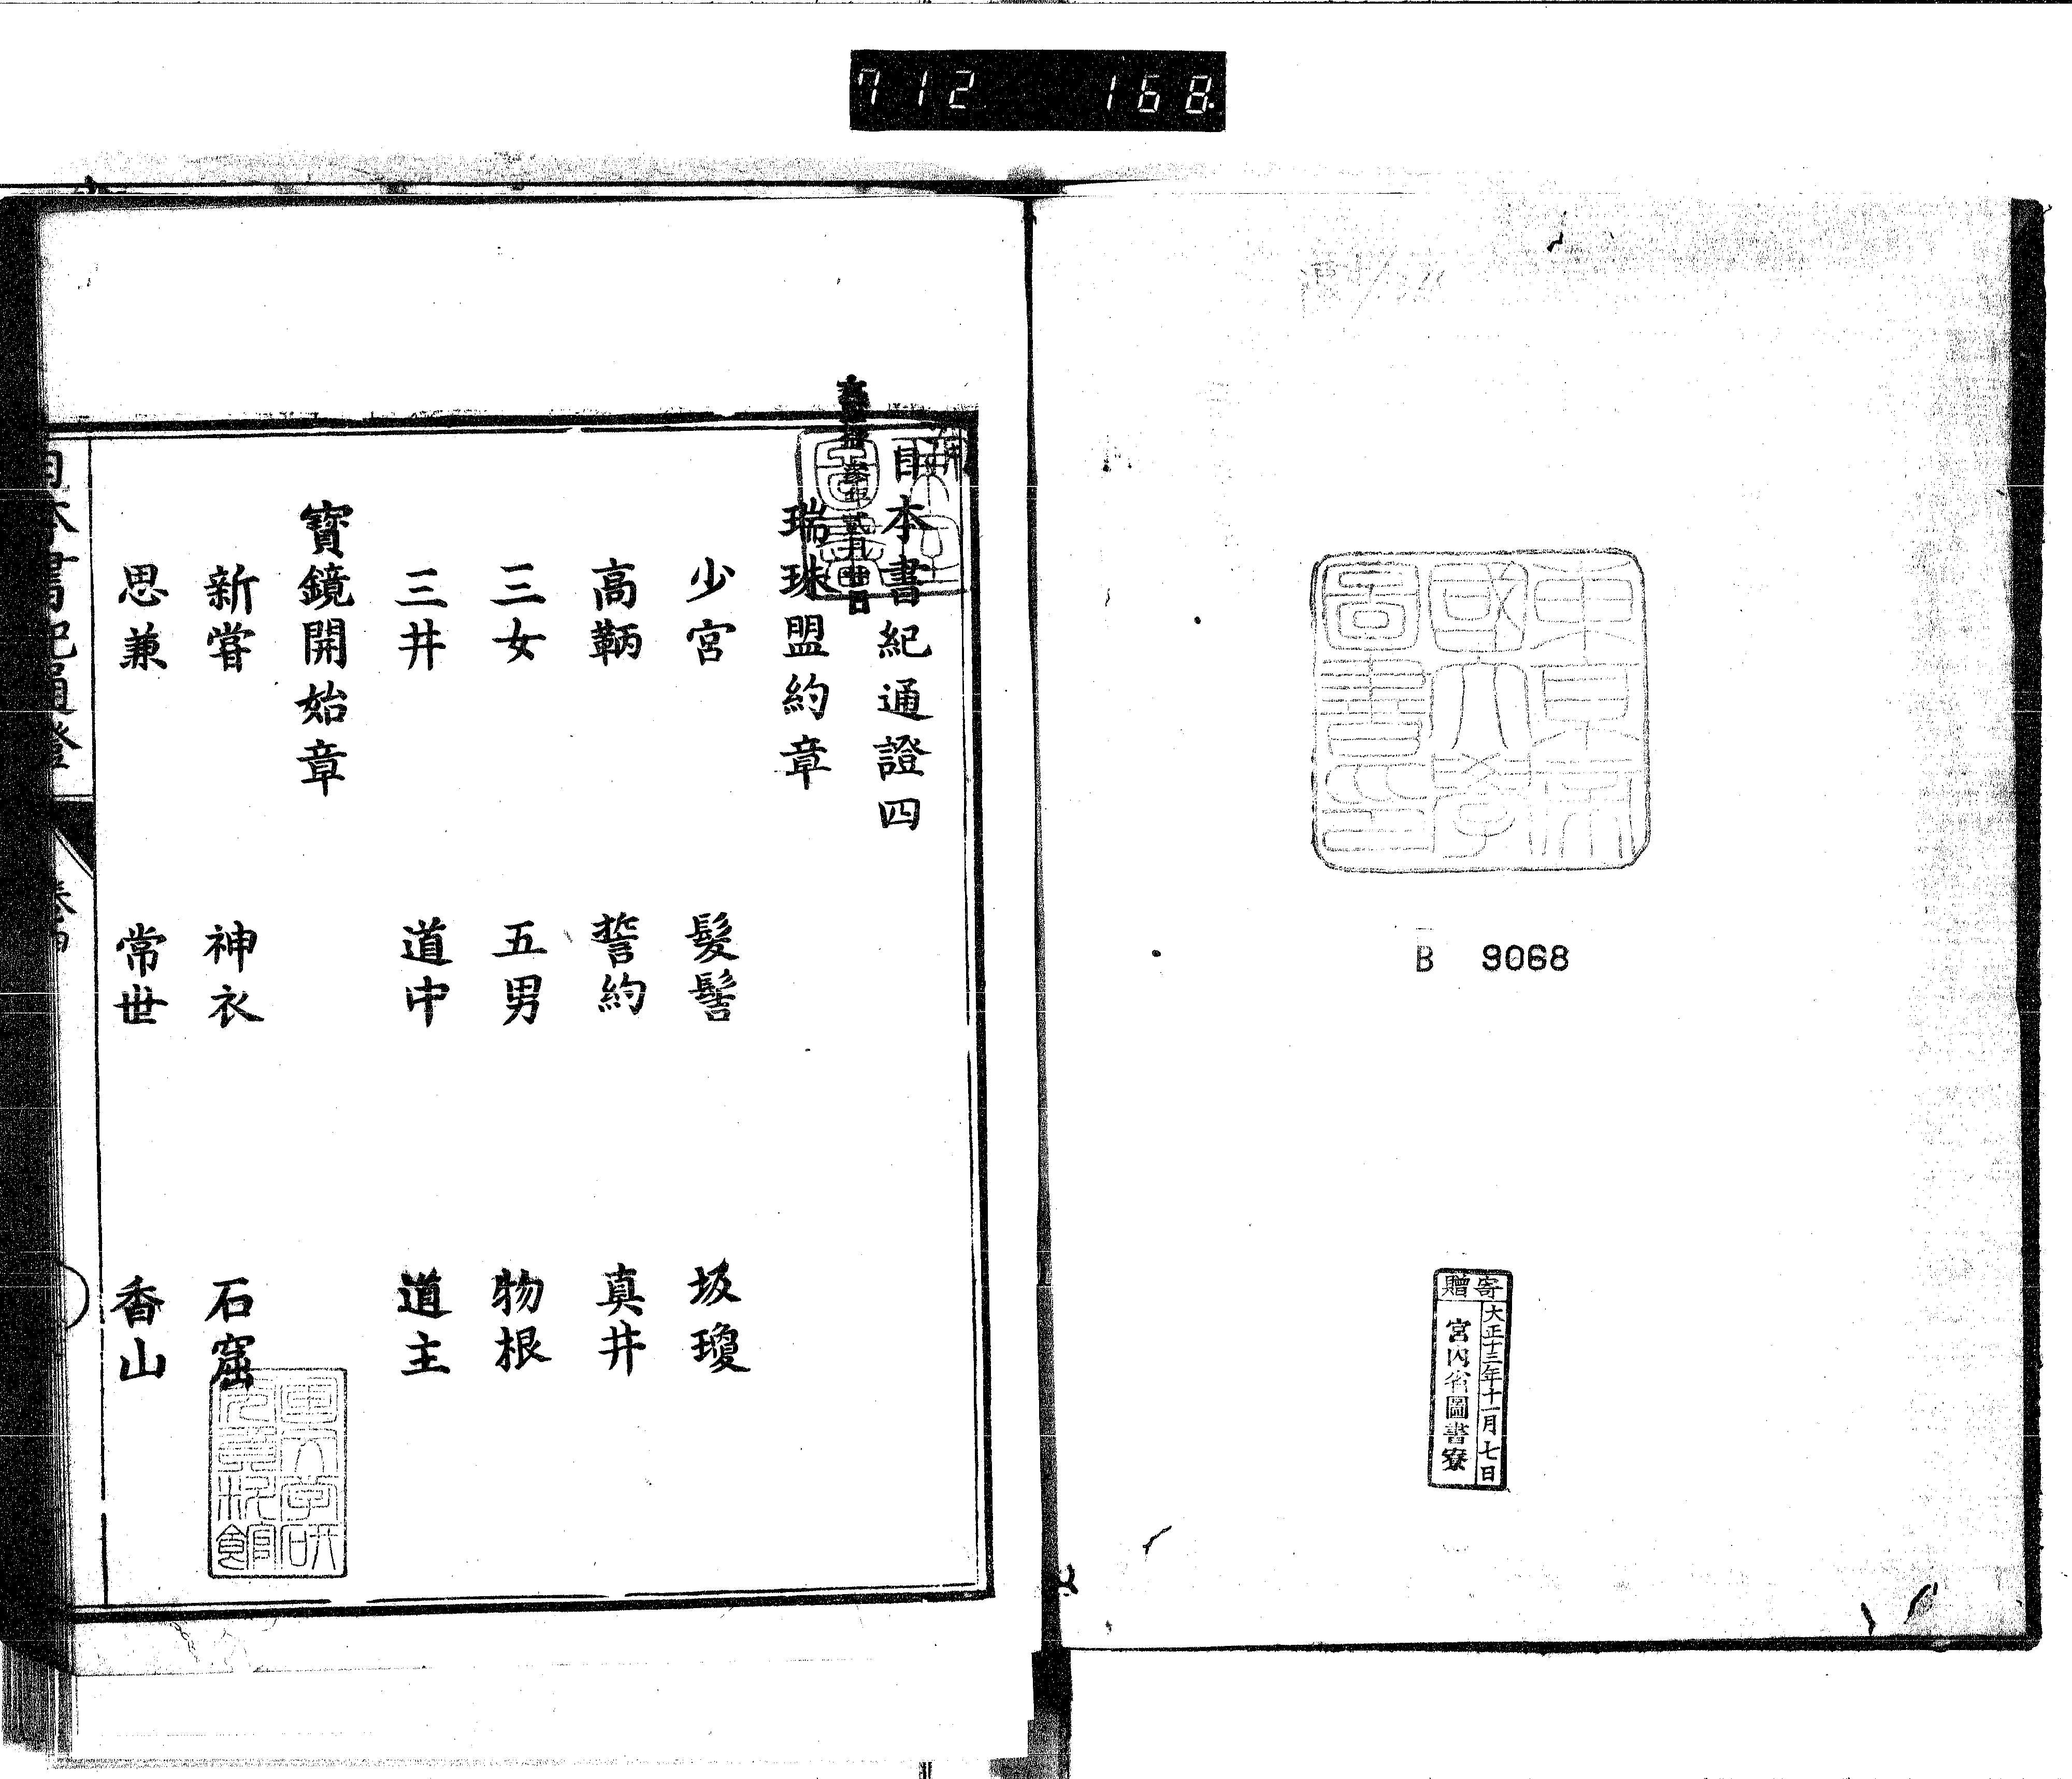 712 168
東京帝
國大學
圖書印
B 9068
寄贈
大正十三年十一月七日
宮内省圖書寮
日本書紀通證四
瑞珠盟約章
少宮 髮髻 坂瓊
高鞆 誓約 真井
三女 五男 物根
三井 道中 道主
寶鏡開始章
新嘗 神衣 石窟
思兼 常世 香山
日本書紀通證